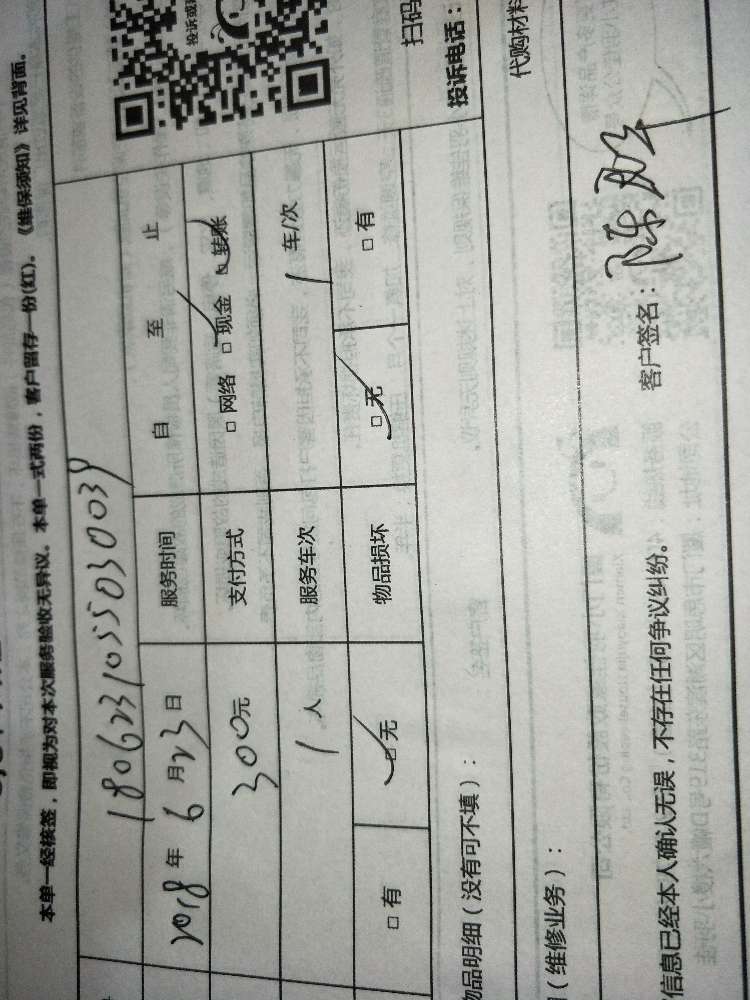 本单一经核签，即视为对本次服务验收无异议。本单一式两份，客户留存一份(红)。《维保须知》详见背面。
1806231055030039
投诉或
2018年6月23日 服务时间 自 至 止
300元 支付方式 □网络 □现金 □转账
1人 服务车次 1车/次
□有 □无 物品损坏 □无 □有
扫码
物品明细（没有可不填）： 投诉电话：
（维修业务）： 代购材料
客户签名：陈
信息已经本人确认无误，不存在任何争议纠纷。